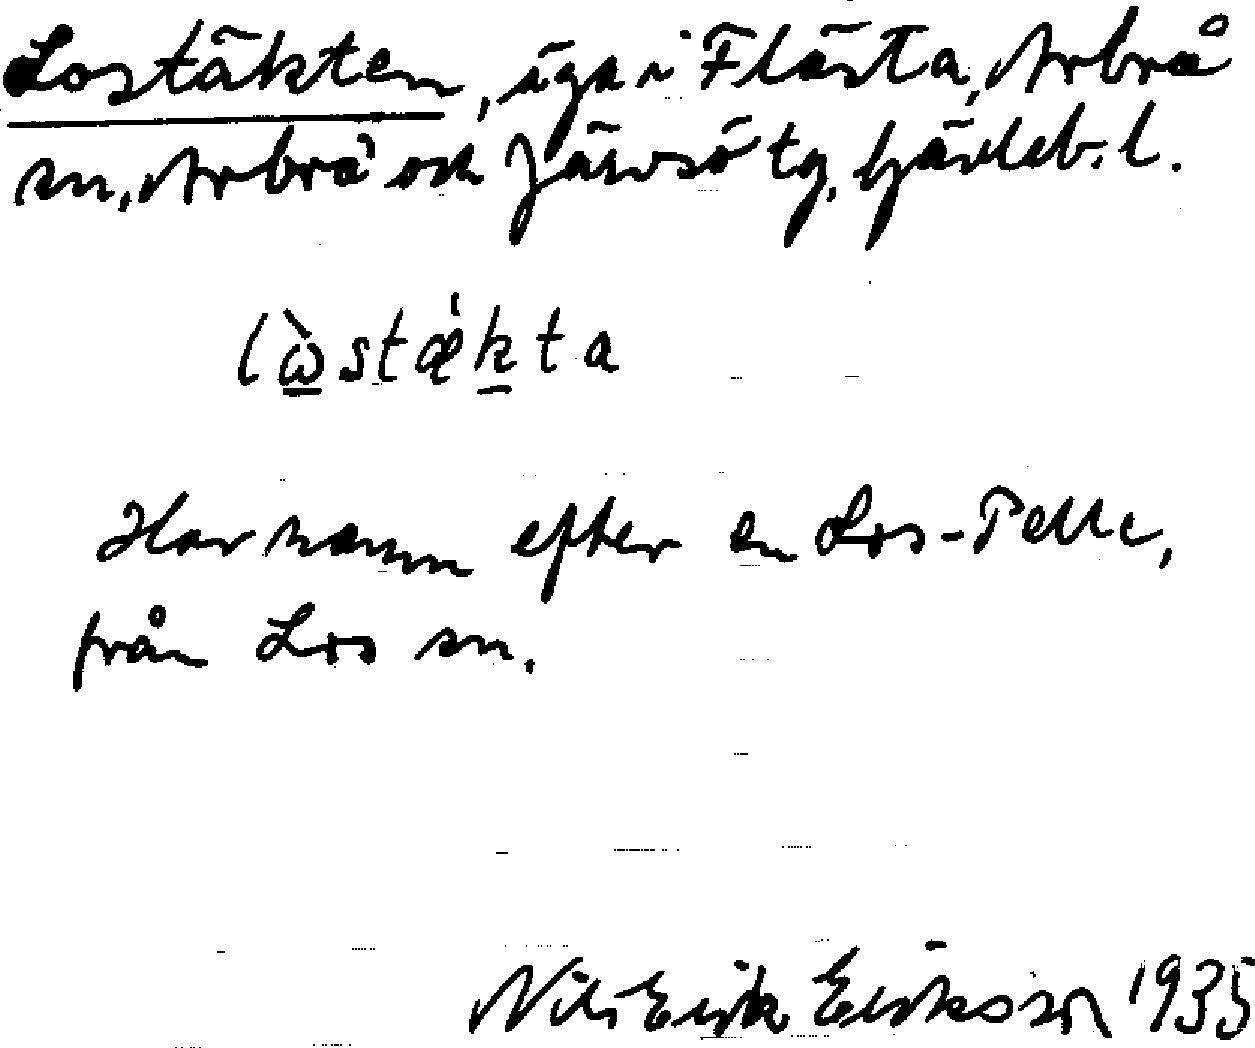 Lostäkten, äga i Flästa, Arbrå
sn, Arbrå och Järvsö tg, Gävleb. l.
lὼ̱stǽḵta
Har namn efter en Los-Pelle,
från Los sn.
Nils Erik Eriksson 1935